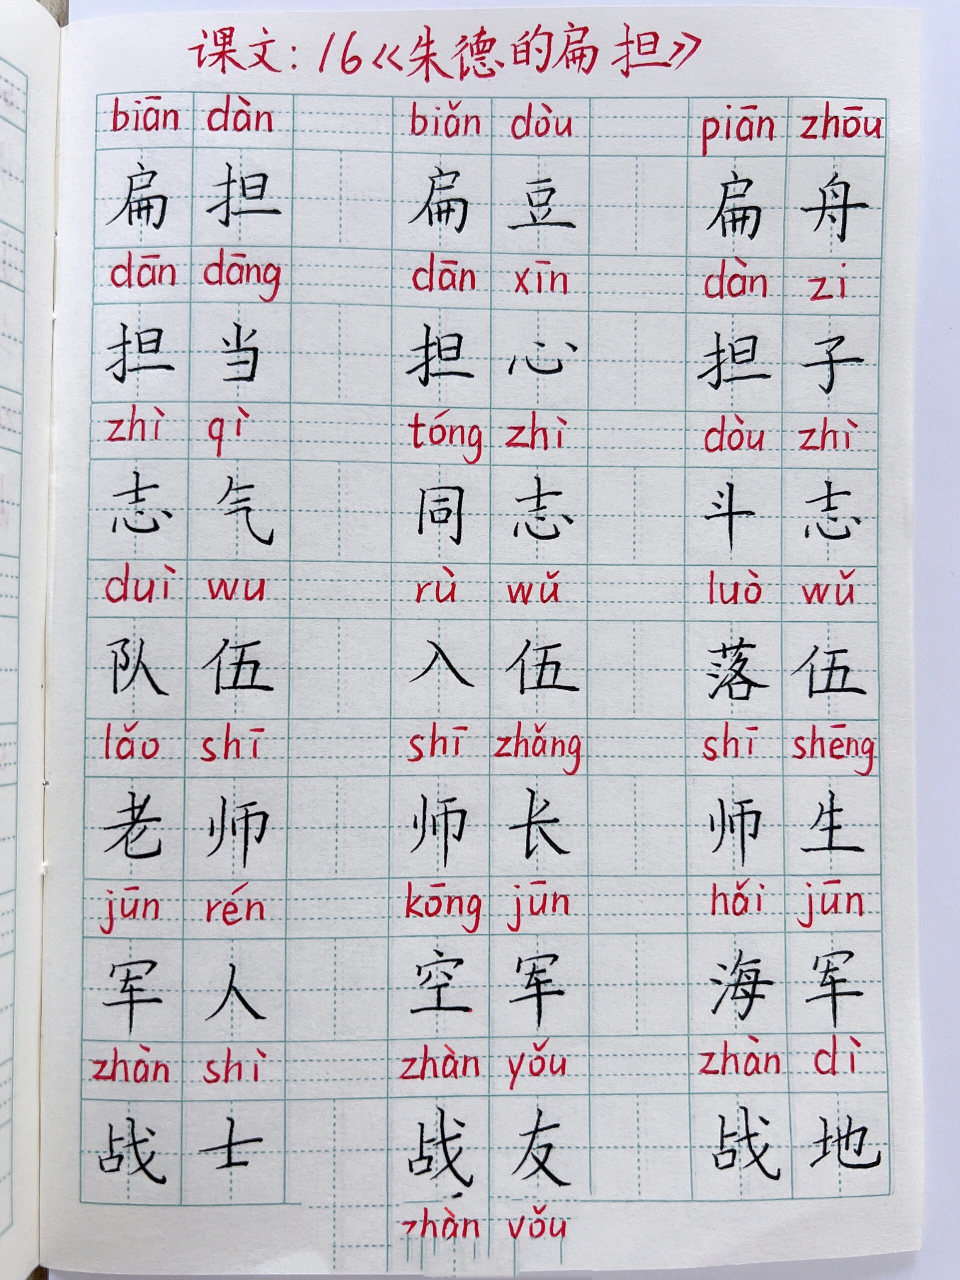 课文:16《朱德的扁担》
biān dàn biǎn dòu piān zhōu
扁担 扁豆 扁舟
dān dāng dān xīn dàn zi
担当 担心 担子
zhì qì tóng zhì dòu zhì
志气 同志 斗志
duì wu rù wǔ luò wǔ
队伍 入伍 落伍
lǎo shī shī zhǎng shī shēng
老师 师长 师生
jūn rén kōng jūn hǎi jūn
军人 空军 海军
zhàn shì zhàn yǒu zhàn dì
战士 战友 战地
zhàn yǒu